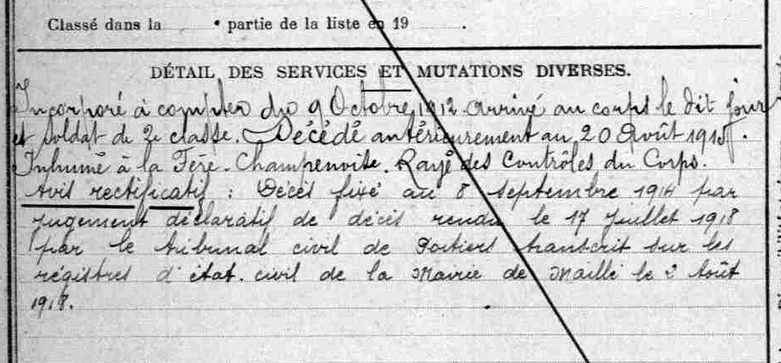 Classé dans la • partie de la liste en 19 .
DÉTAIL DES SERVICES ET MUTATIONS DIVERSES.
Incorporé à compter du 9 Octobre 1912 arrivé au corps le dit jour
et soldat de 2e classe. Décédé antérieurement au 20 Août 1915.
Inhumé à la Fère-Champenoise. Rayé des Contrôles du Corps.
Avis rectificatif : Décès fixé au 8 Septembre 1914 par
jugement déclaratif de décès rendu le 17 juillet 1918
par le tribunal civil de Poitiers transcrit sur les
régistres d'état-civil de la Mairie de Maillé le 2 Août
1918.